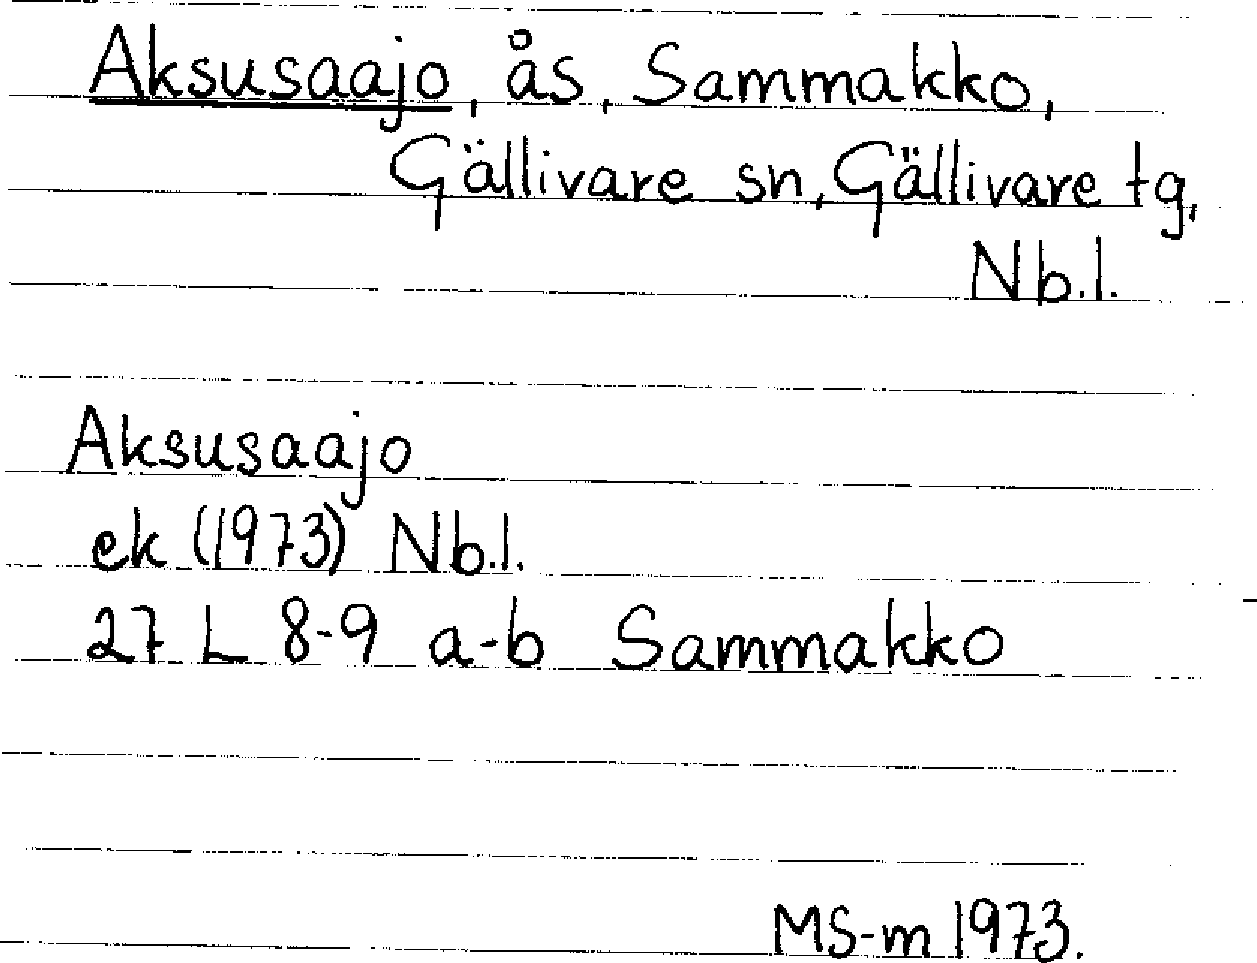 Aksusaajo, ås, Sammakko,
Gällivare sn, Gällivare tg,
Nb.l.
Aksusaajo
ek (1973) Nb.l.
27 L 8-9 a-b Sammakko
MS-m 1973.